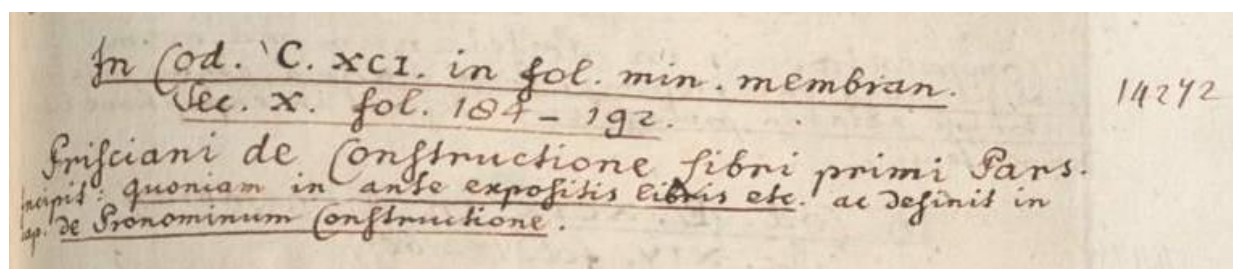 In Cod. C. XCI. in fol. min. membran.
14272
Sec. X. fol. 184 – 192.
Prisciani de Constructione libri primi Pars.
incipit: quoniam in ante expositis libris etc. ac definit in
cap. de Pronominum Constructione.